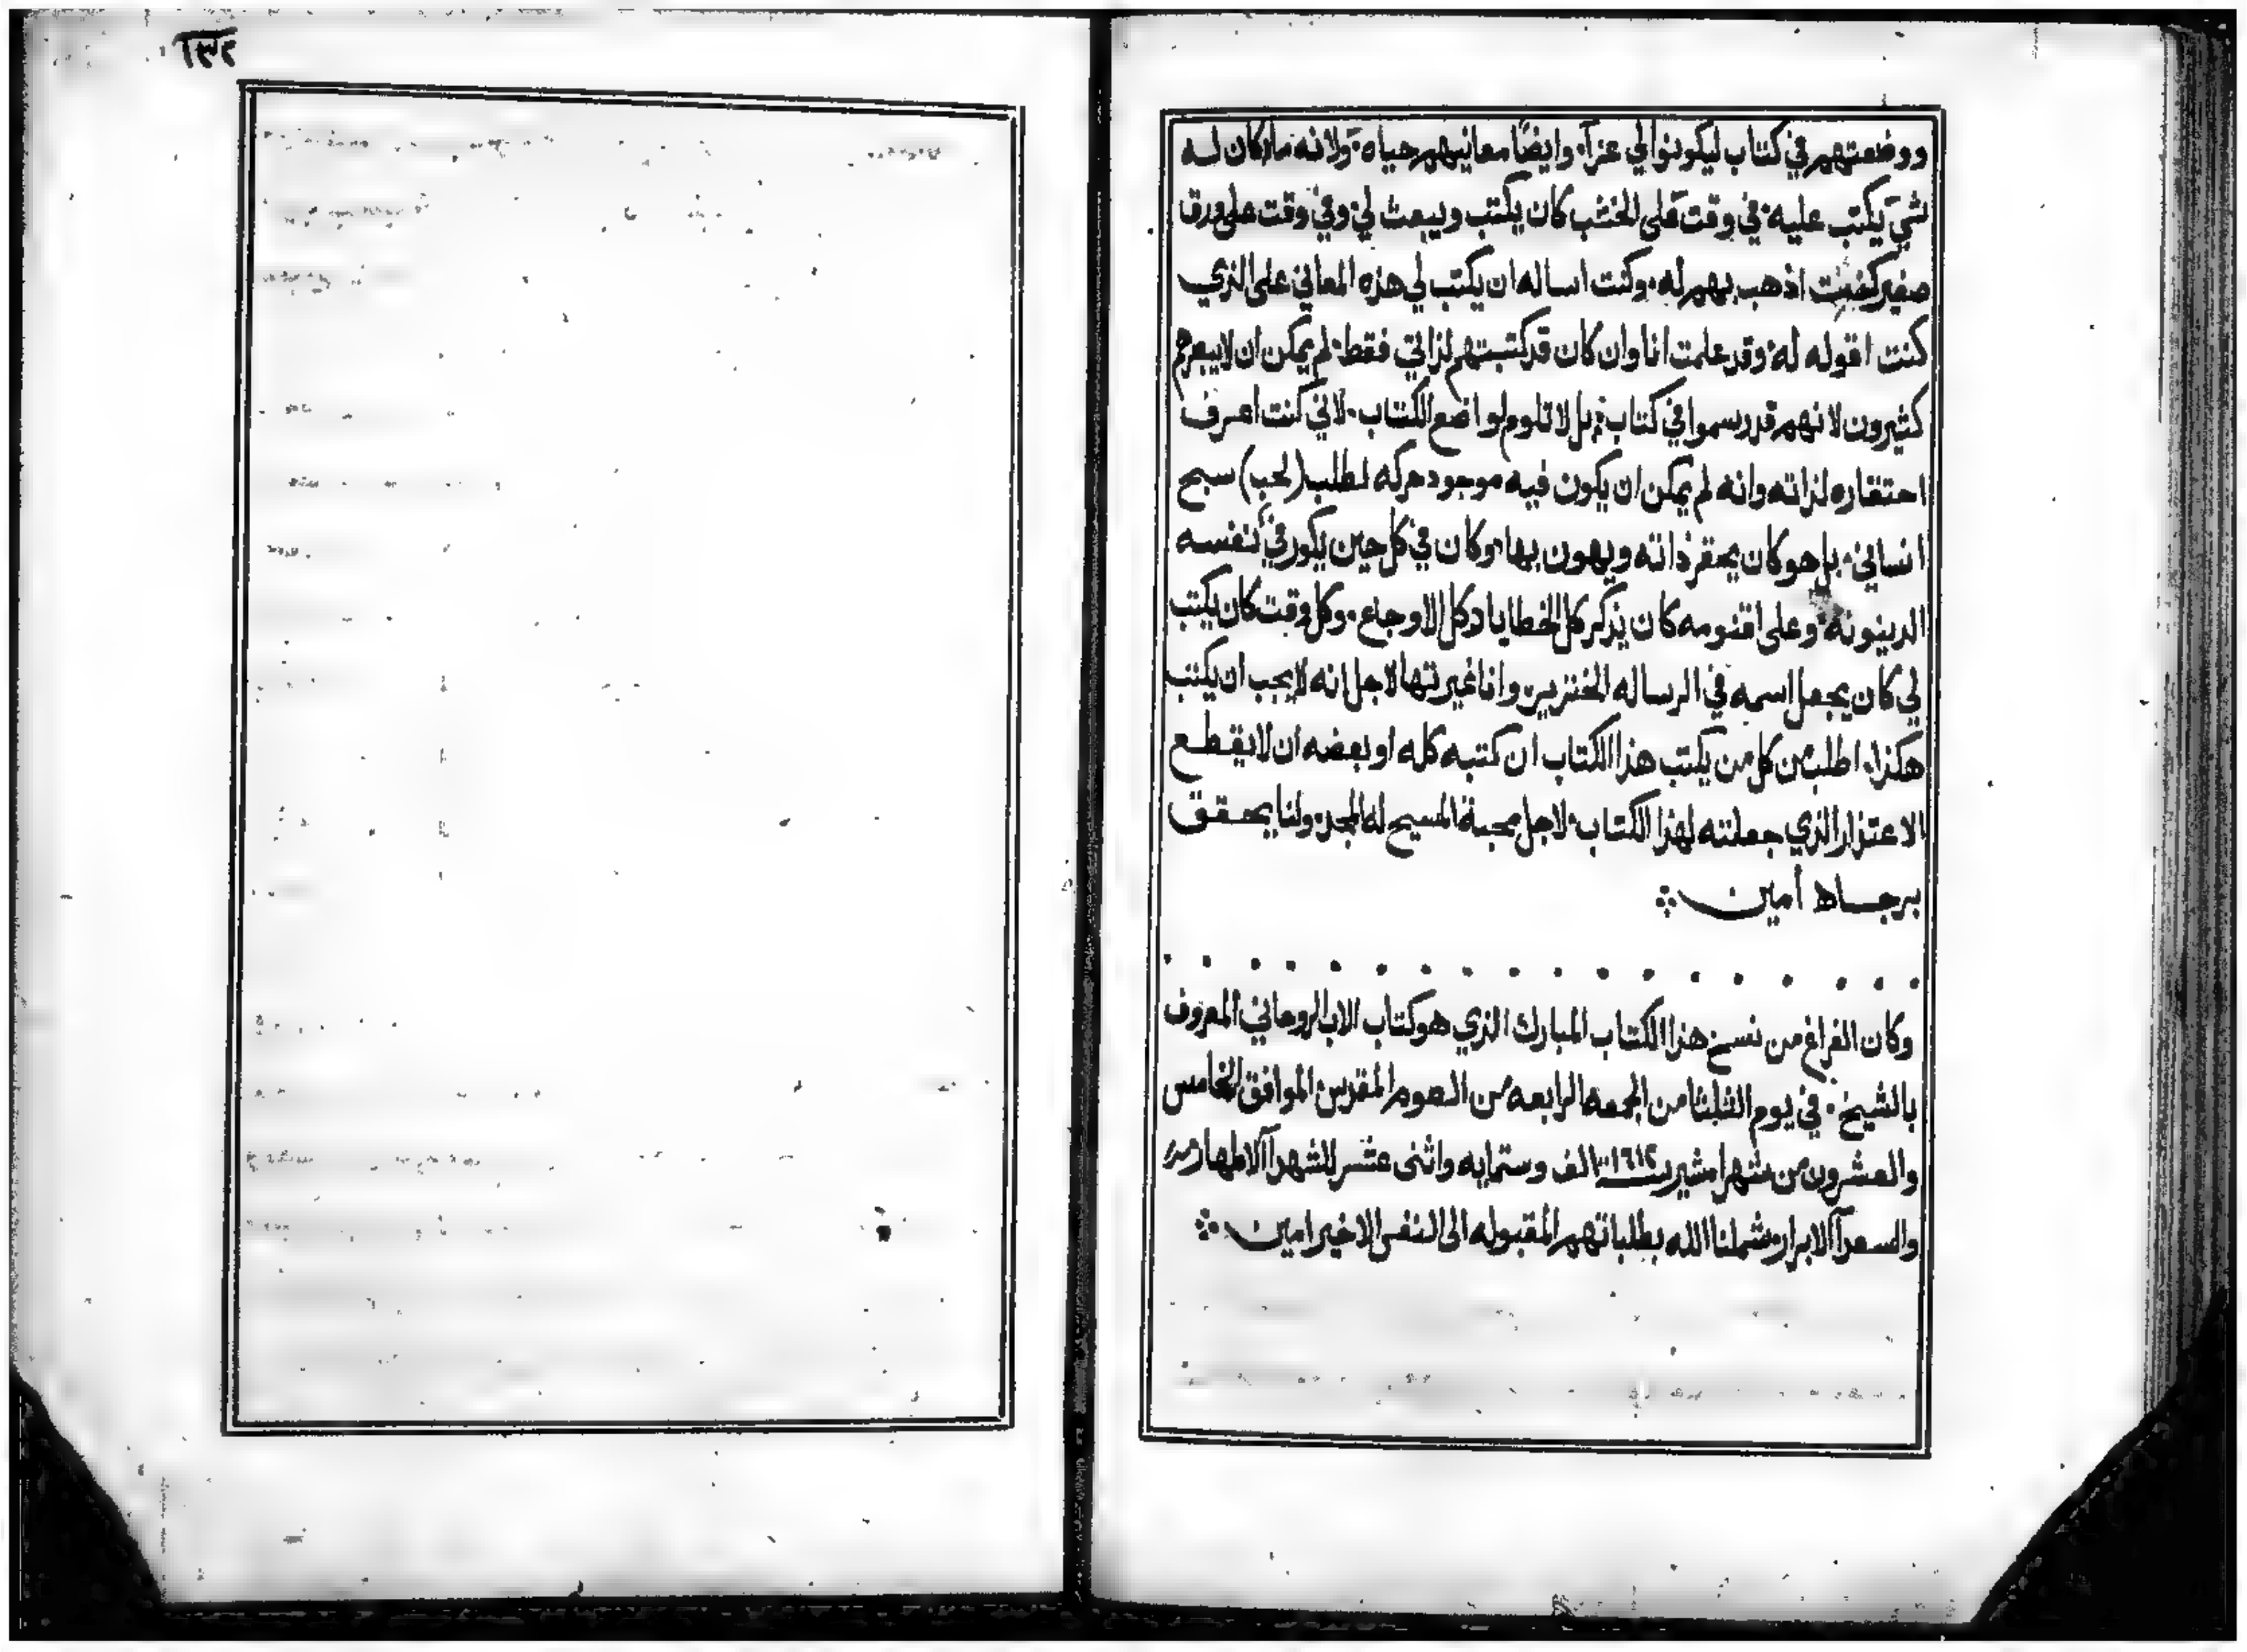 ووضعتهم في كتاب ليكونوا لي عزآ. وايضًا معانيهم حياه. ولانه ماكان له
شي يكتب عليه. في وقت على الخشب كان يكتب ويبعث لي وفي وقت على ورق
صغير كنت اذهب بهم له. وكنت اساله ان يكتب لي هذه المعاني على الذي
كنت اقوله له. وقد علمت انا وان كان قد كتبتهم لذاتي فقط. لم يمكن ان لا يبصرهم
كثيرون لانهم قد رسموا في كتاب. بل لا تلوم لواضع الكتاب. لاني كنت اعرف
احتقاره لذاته وانه لم يمكن ان يكون فيه موجود حركه لطلب (لحب) سبح
انساني. بل هو كان يحقر ذاته ويهون بها. وكان في كل حين يكور في نفسه
الدينونة. وعلى اقنومه كان يذكر كل الخطايا وكل الاوجاع. وكل وقت كان يكتب
لي كان يجعل اسمه في الرساله الخنزير وانا غيرتها لاجل انه لا يجب ان يكتب
هكذا. اطلب من كل من يكتب هذا الكتاب ان كتبه كله او بعضه ان لا يقطع
الاعتذار الذي جعلته لهذا الكتاب. لاجل محبة المسيح له المجد. ولنا يحقق
برجاه أمين
وكان الفراغ من نسخ هذا الكتاب المبارك الذي هو كتاب الاب الروحاني المعروف
بالشيخ. في يوم الثلثا من الجمعه الرابعه من الصوم المقدس الموافق الخامس
والعشرون من شهر امشير سنة ١٦١٢ الف وستمايه واثنى عشر للشهدآ الاطهار
والسعدآ الابرار. شملنا الله بطلباتهم المقبوله الى النفس الاخير امين
١٣٢